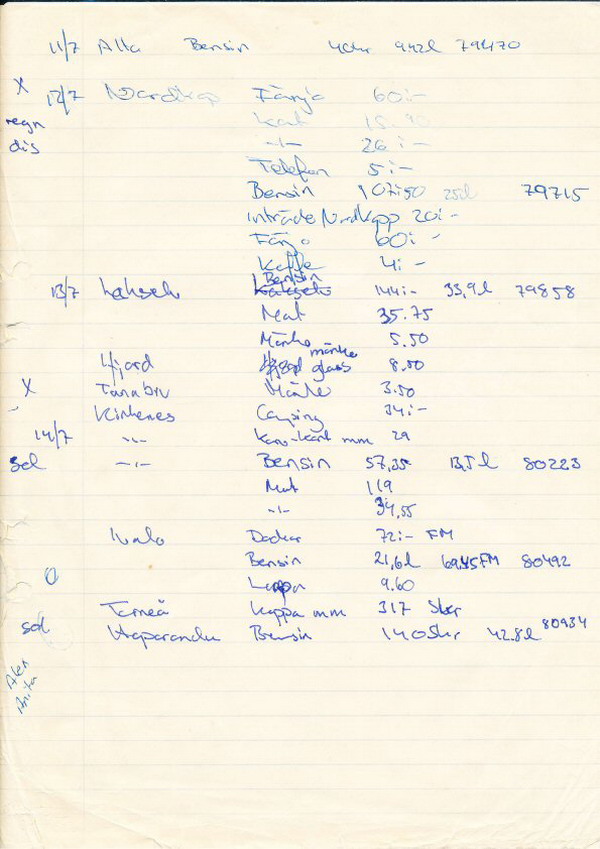 11/7 Alta Bensin 40kr 9,42l 79470
X 12/7 Nordkap Färja 60:-
regn kort 15.90
dis -"- 26:-
Telefon 5:-
Bensin 107:50 25l 79715
inträde Nordkapp 20:-
Färja 60:-
Kaffe 4:-
Bensin
13/7 Lakselv 144:- 33,9l 79858
Mat 35.75
Märke 5.50
Ifjord märke glass 8,50
X Tanabru Märke 3.50
Kirkenes Camping 34:-
14/7 -"- kort mm 29
sol -"- Bensin 57,35 13,5l 80223
Mat 119
-"- 34,55
Ivalo Dockor 72:- FM
Bensin 21,6l 69.45FM 80492
0 9.60
Torneå Kåppa mm 317 Skr
sol Haparanda Bensin 140Skr 42.8l 80934
Anita